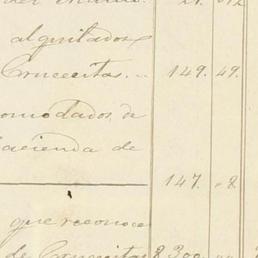 alquitados
Crucecitas. .. 149. 49.
comodados de
hacienda de
147. . 8.
que reconoce
de Crucecitas 8300.